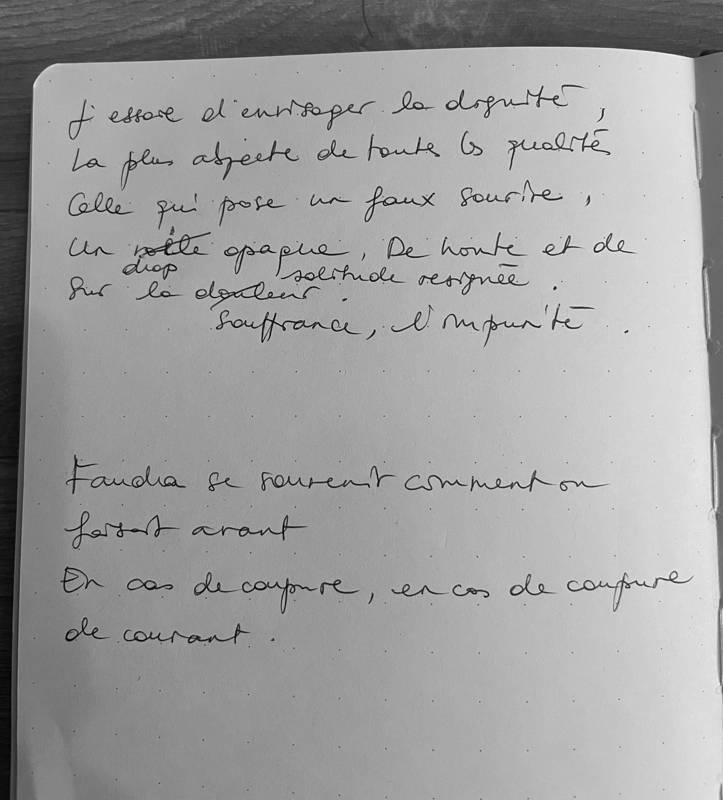 J'essaie d'envisager la dignité,
La plus abjecte de toutes les qualités
Celle qui pose un faux sourire,
Un voile opaque, De honte et de
drap solitude resignée.
Sur la douleur.
Souffrance, l'impunité.
Faudra se souvenir comment on
faisait avant
En cas de coupure, en cas de coupure
de courant.